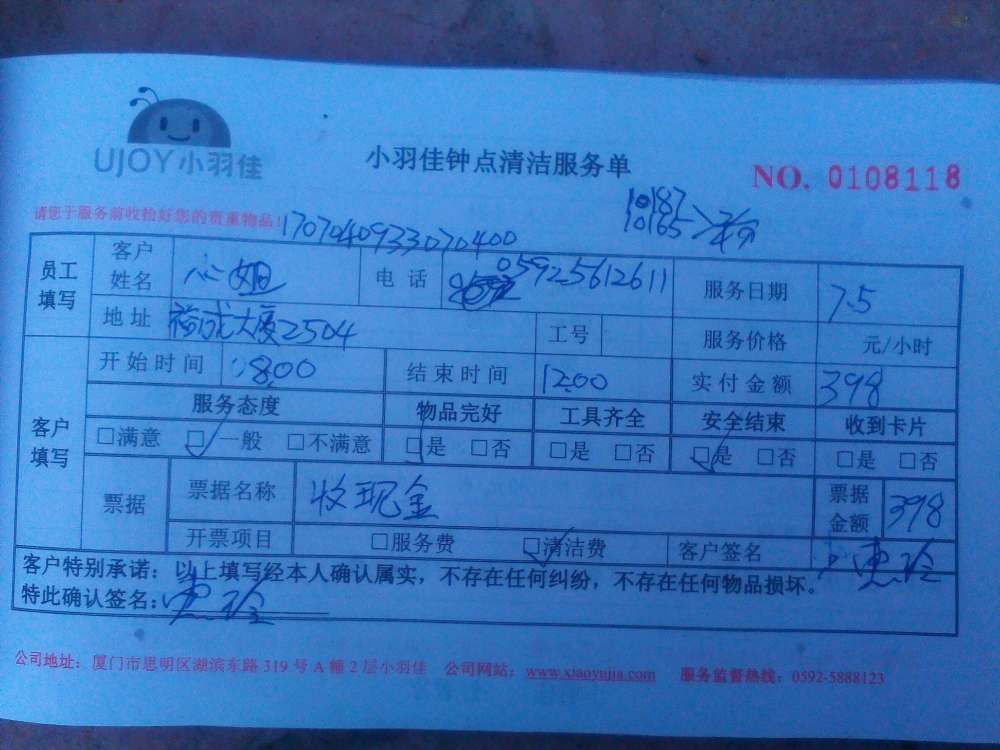 UJOY小羽佳
小羽佳钟点清洁服务单
NO. 0108118
请您于服务前收拾好您的贵重物品!
1707040933070400
10187
10165
员工填写 客户姓名 电话 0592-5612611 服务日期 7.5
地址 裕成大厦2504 工号 服务价格 元/小时
客户填写 开始时间 8:00 结束时间 12:00 实付金额 398
服务态度 物品完好 工具齐全 安全结束 收到卡片
□满意 □一般 □不满意 □是 □否 □是 □否 □是 □否 □是 □否
票据 票据名称 收现金 票据金额 398
开票项目 □服务费 □清洁费 客户签名
客户特别承诺：以上填写经本人确认属实，不存在任何纠纷，不存在任何物品损坏。
特此确认签名：
公司地址：厦门市思明区湖滨东路 319 号 A 幢 2 层小羽佳 公司网站：www.xiaoyujia.com 服务监督热线：0592-5888123